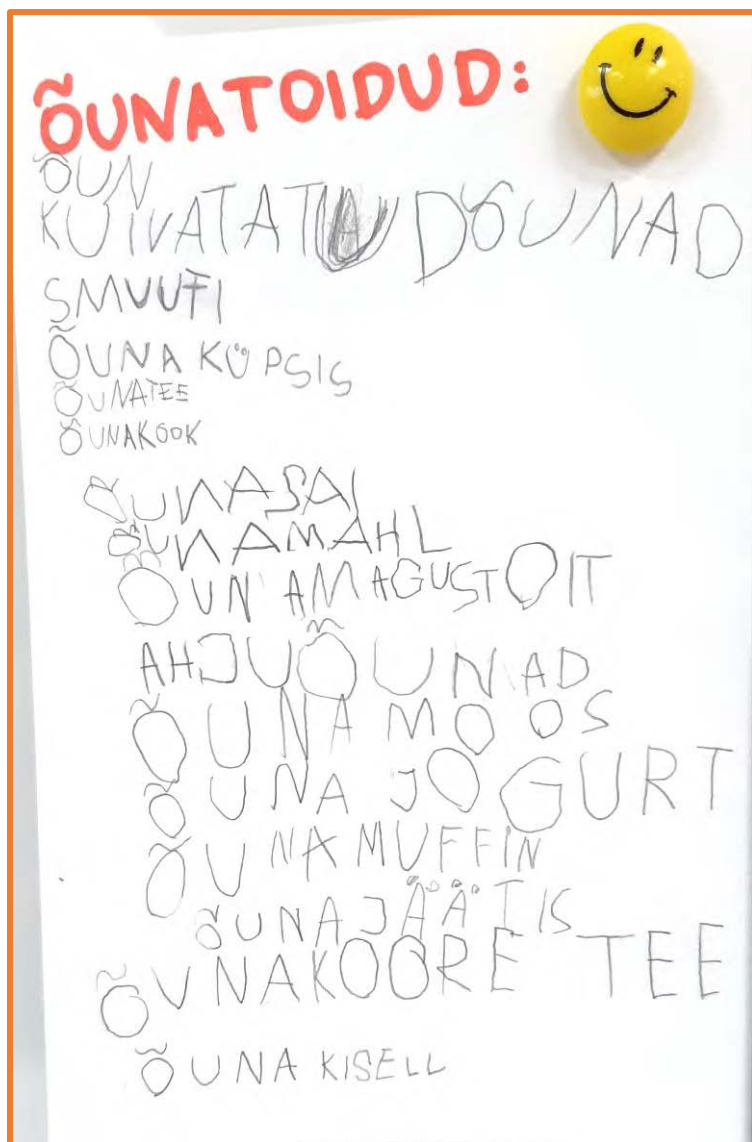 ÕUNATOIDUD:
ÕUN
KUIVATATUD ÕUNAD
SMUUTI
ÕUNA KÜPSIS
ÕUNATEE
ÕUNAKOOK
ÕUNASAI
ÕUNAMAHL
ÕUNAMAGUSTOIT
AHJUÕUNAD
ÕUNAMOOS
ÕUNA JOGURT
ÕUNAMUFFIN
ÕUNAJÄÄTIS
ÕUNAKOORE TEE
ÕUNA KISELL